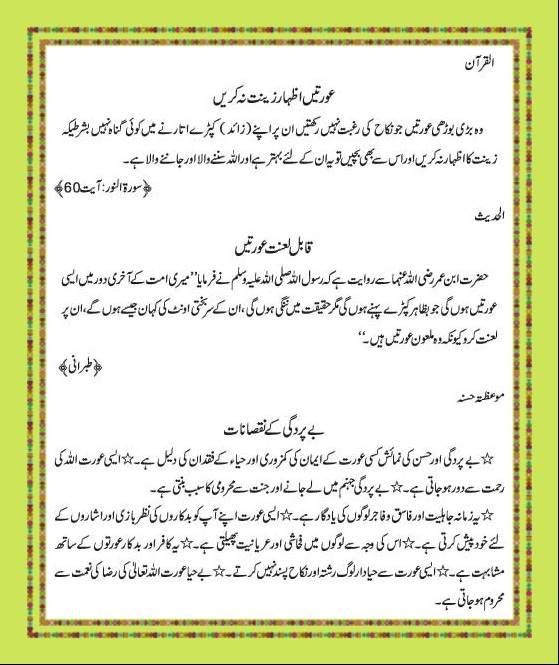 القرآن
عورتیں اظہار زینت نہ کریں
وہ بڑی بوڑھی عورتیں جو نکاح کی رغبت نہیں رکھتیں ان پر اپنے (زائد) کپڑے اتارنے میں کوئی گناہ نہیں بشرطیکہ
زینت کا اظہار نہ کریں اور اس سے بھی بچیں تو یہ ان کے لئے بہتر ہے اور اللہ سننے والا اور جاننے والا ہے۔
﴿سورۃ النور: آیت 60﴾
الحدیث
قابل لعنت عورتیں
حضرت ابن عمر رضی اللہ عنہما سے روایت ہے کہ رسول اللہ صلی اللہ علیہ وسلم نے فرمایا ’’میری امت کے آخری دور میں ایسی
عورتیں ہوں گی جو بظاہر کپڑے پہنے ہوں گی مگر حقیقت میں ننگی ہوں گی، ان کے سر بختی اونٹ کی کہان جیسے ہوں گے، ان پر
لعنت کرو کیونکہ وہ ملعون عورتیں ہیں۔‘‘
﴿طبرانی﴾
موعظتہ حسنہ
بے پردگی کے نقصانات
☆ بے پردگی اور حسن کی نمائش کسی عورت کے ایمان کی کمزوری اور حیاء کے فقدان کی دلیل ہے۔ ☆ ایسی عورت اللہ کی
رحمت سے دور ہو جاتی ہے۔ ☆ بے پردگی جہنم میں لے جانے اور جنت سے محرومی کا سبب بنتی ہے۔
☆ یہ زمانہ جاہلیت اور فاسق و فاجر لوگوں کی یادگار ہے۔ ☆ ایسی عورت اپنے آپ کو بدکاروں کی نظر بازی اور اشاروں کے
لئے خود پیش کرتی ہے۔ ☆ اس کی وجہ سے لوگوں میں فحاشی اور عریانیت پھیلتی ہے۔ ☆ یہ کافر اور بدکار عورتوں کے ساتھ
مشابہت ہے۔ ☆ ایسی عورت سے حیادار لوگ رشتہ اور نکاح پسند نہیں کرتے۔ ☆ بے حیا عورت اللہ تعالیٰ کی رضا کی نعمت سے
محروم ہو جاتی ہے۔